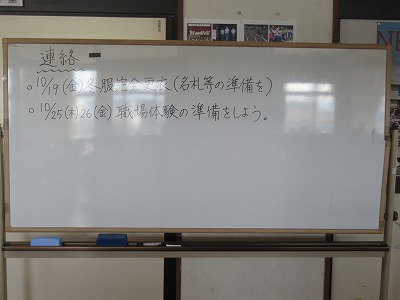 連絡
。10/19(金)冬服完全更衣(名札等の準備を)
。10/25(木)26(金)職場体験の準備をしよう。